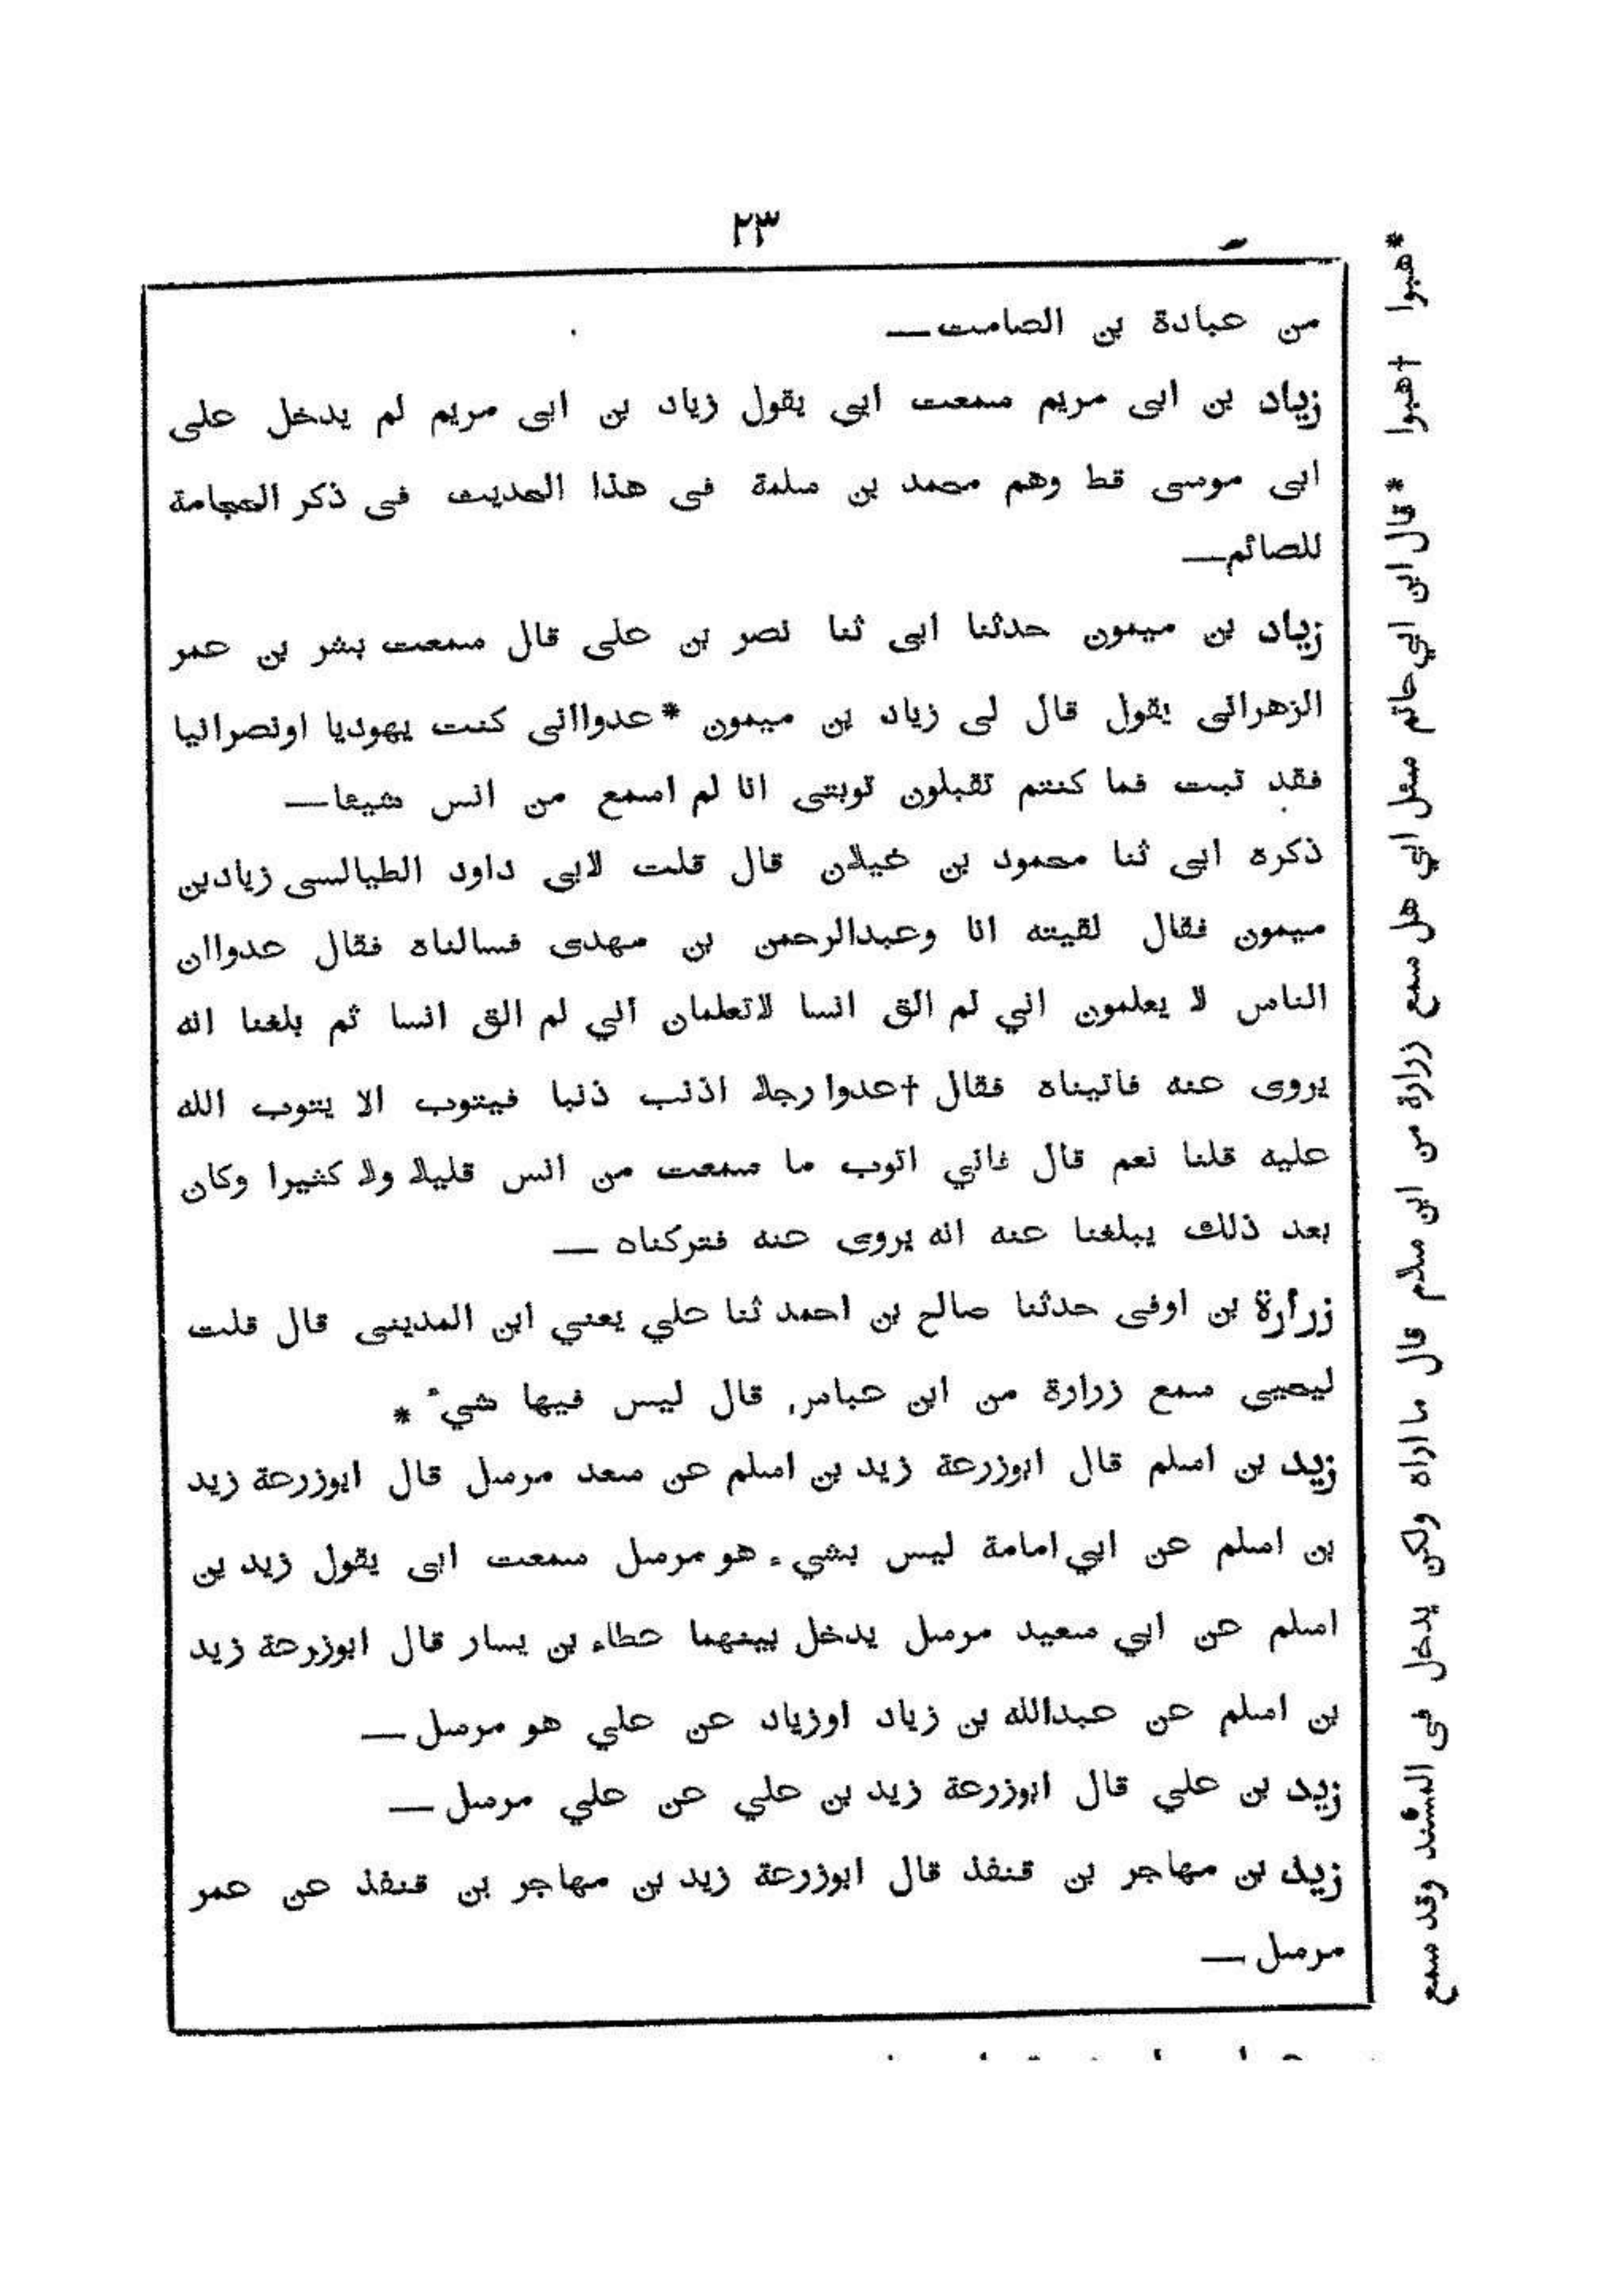 ٢٣
من عبادة بن الصامت—
زياد بن ابى مريم سمعت ابى يقول زياد بن ابى مريم لم يدخل على
ابى موسى قط وهم محمد بن سلمة فى هذا الحديث فى ذكر الحجامة
للصائم—
زياد بن ميمون حدثنا ابى ثنا نصر بن على قال سمعت بشر بن عمر
الزهرانى يقول قال لى زياد بن ميمون *عدوااني كنت يهوديا اونصرانيا
فقد تبت فما كنتم تقبلون توبتى انا لم اسمع من انس شيئا—
ذكره ابى ثنا محمود بن غيلان قال قلت لابى داود الطيالسى زيادبن
ميمون فقال لقيته انا وعبدالرحمن بن مهدى فسالناه فقال عدواان
الناس لا يعلمون اني لم الق انسا لاتعلمان اني لم الق انسا ثم بلغنا انه
يروى عنه فاتيناه فقال †عدوا رجلا اذنب ذنبا فيتوب الا يتوب الله
عليه قلنا نعم قال فاني اتوب ما سمعت من انس قليلا ولا كثيرا وكان
بعد ذلك يبلغنا عنه انه يروى عنه فتركناه —
زرارة بن اوفى حدثنا صالح بن احمد ثنا علي يعني ابن المدينى قال قلت
ليحيى سمع زرارة من ابن عباس، قال ليس فيها شيء *
زيد بن اسلم قال ابوزرعة زيد بن اسلم عن سعد مرسل قال ابوزرعة زيد
بن اسلم عن ابي امامة ليس بشيء هو مرسل سمعت ابى يقول زيد بن
اسلم عن ابي سعيد مرسل يدخل بينهما عطاء بن يسار قال ابوزرعة زيد
بن اسلم عن عبدالله بن زياد اوزياد عن علي هو مرسل —
زيد بن علي قال ابوزرعة زيد بن علي عن علي مرسل —
زيد بن مهاجر بن قنفذ قال ابوزرعة زيد بن مهاجر بن قنفذ عن عمر
مرسل —
*هبوا †هبوا *قال ابن ابي حاتم سئل ابي هل سمع زرارة من ابن سلام قال ما اراه ولكن يدخل فى المسند وقد سمع